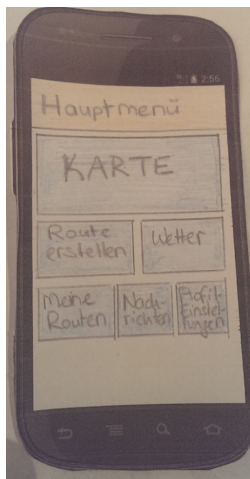 2:56
Hauptmenü
KARTE
Route
erstellen
Wetter
Meine
Routen
Nach-
richten
Profil-
Einstel-
lungen